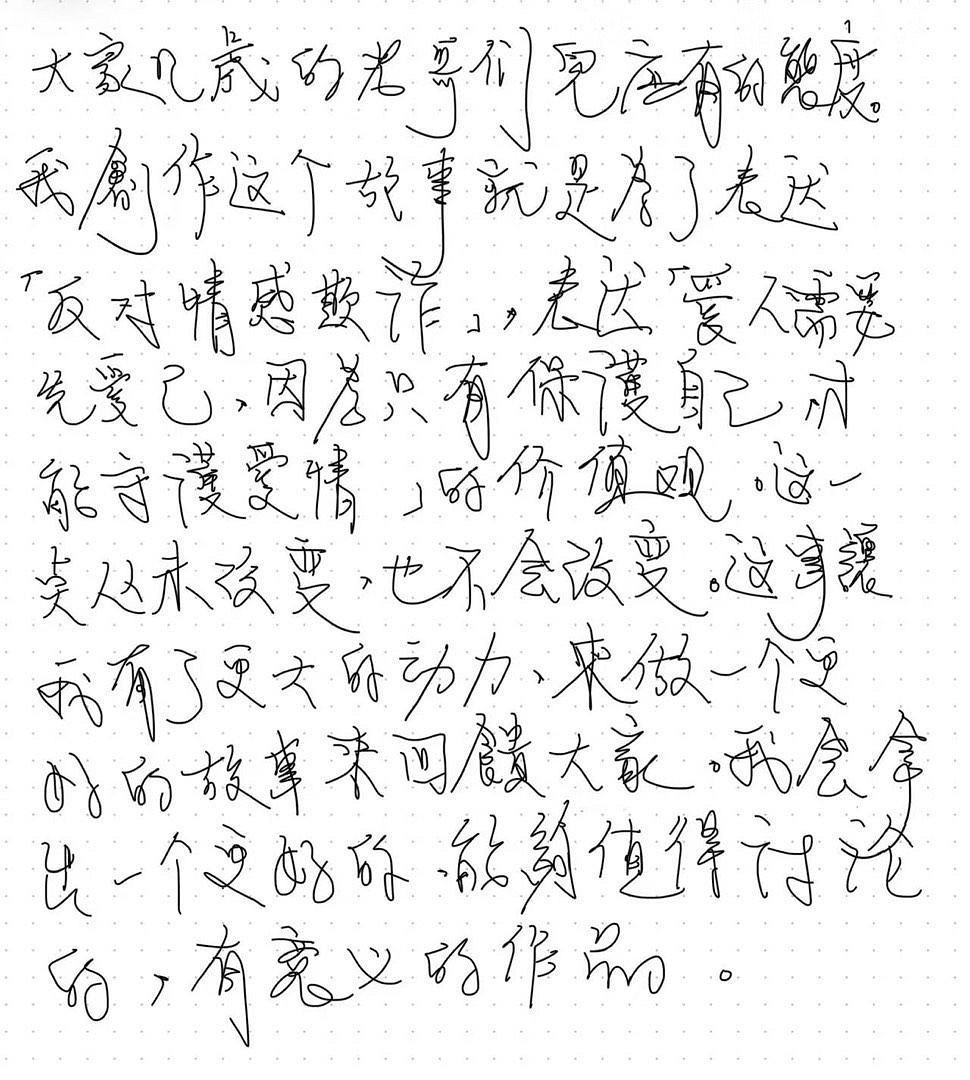 大家几歲的老哥们兒应有的態度。
我創作这个故事就是为了表达
「反对情感欺诈」，表达「爱人需要
先爱己、因为只有保護自己才
能守護爱情」的价值观。这一
点从未改变，也不会改变。这事讓
我有了更大的动力、来做一个更
好的故事来回饋大家。我会拿
出一个更好的、能夠值得讨论
的，有意义的作品。